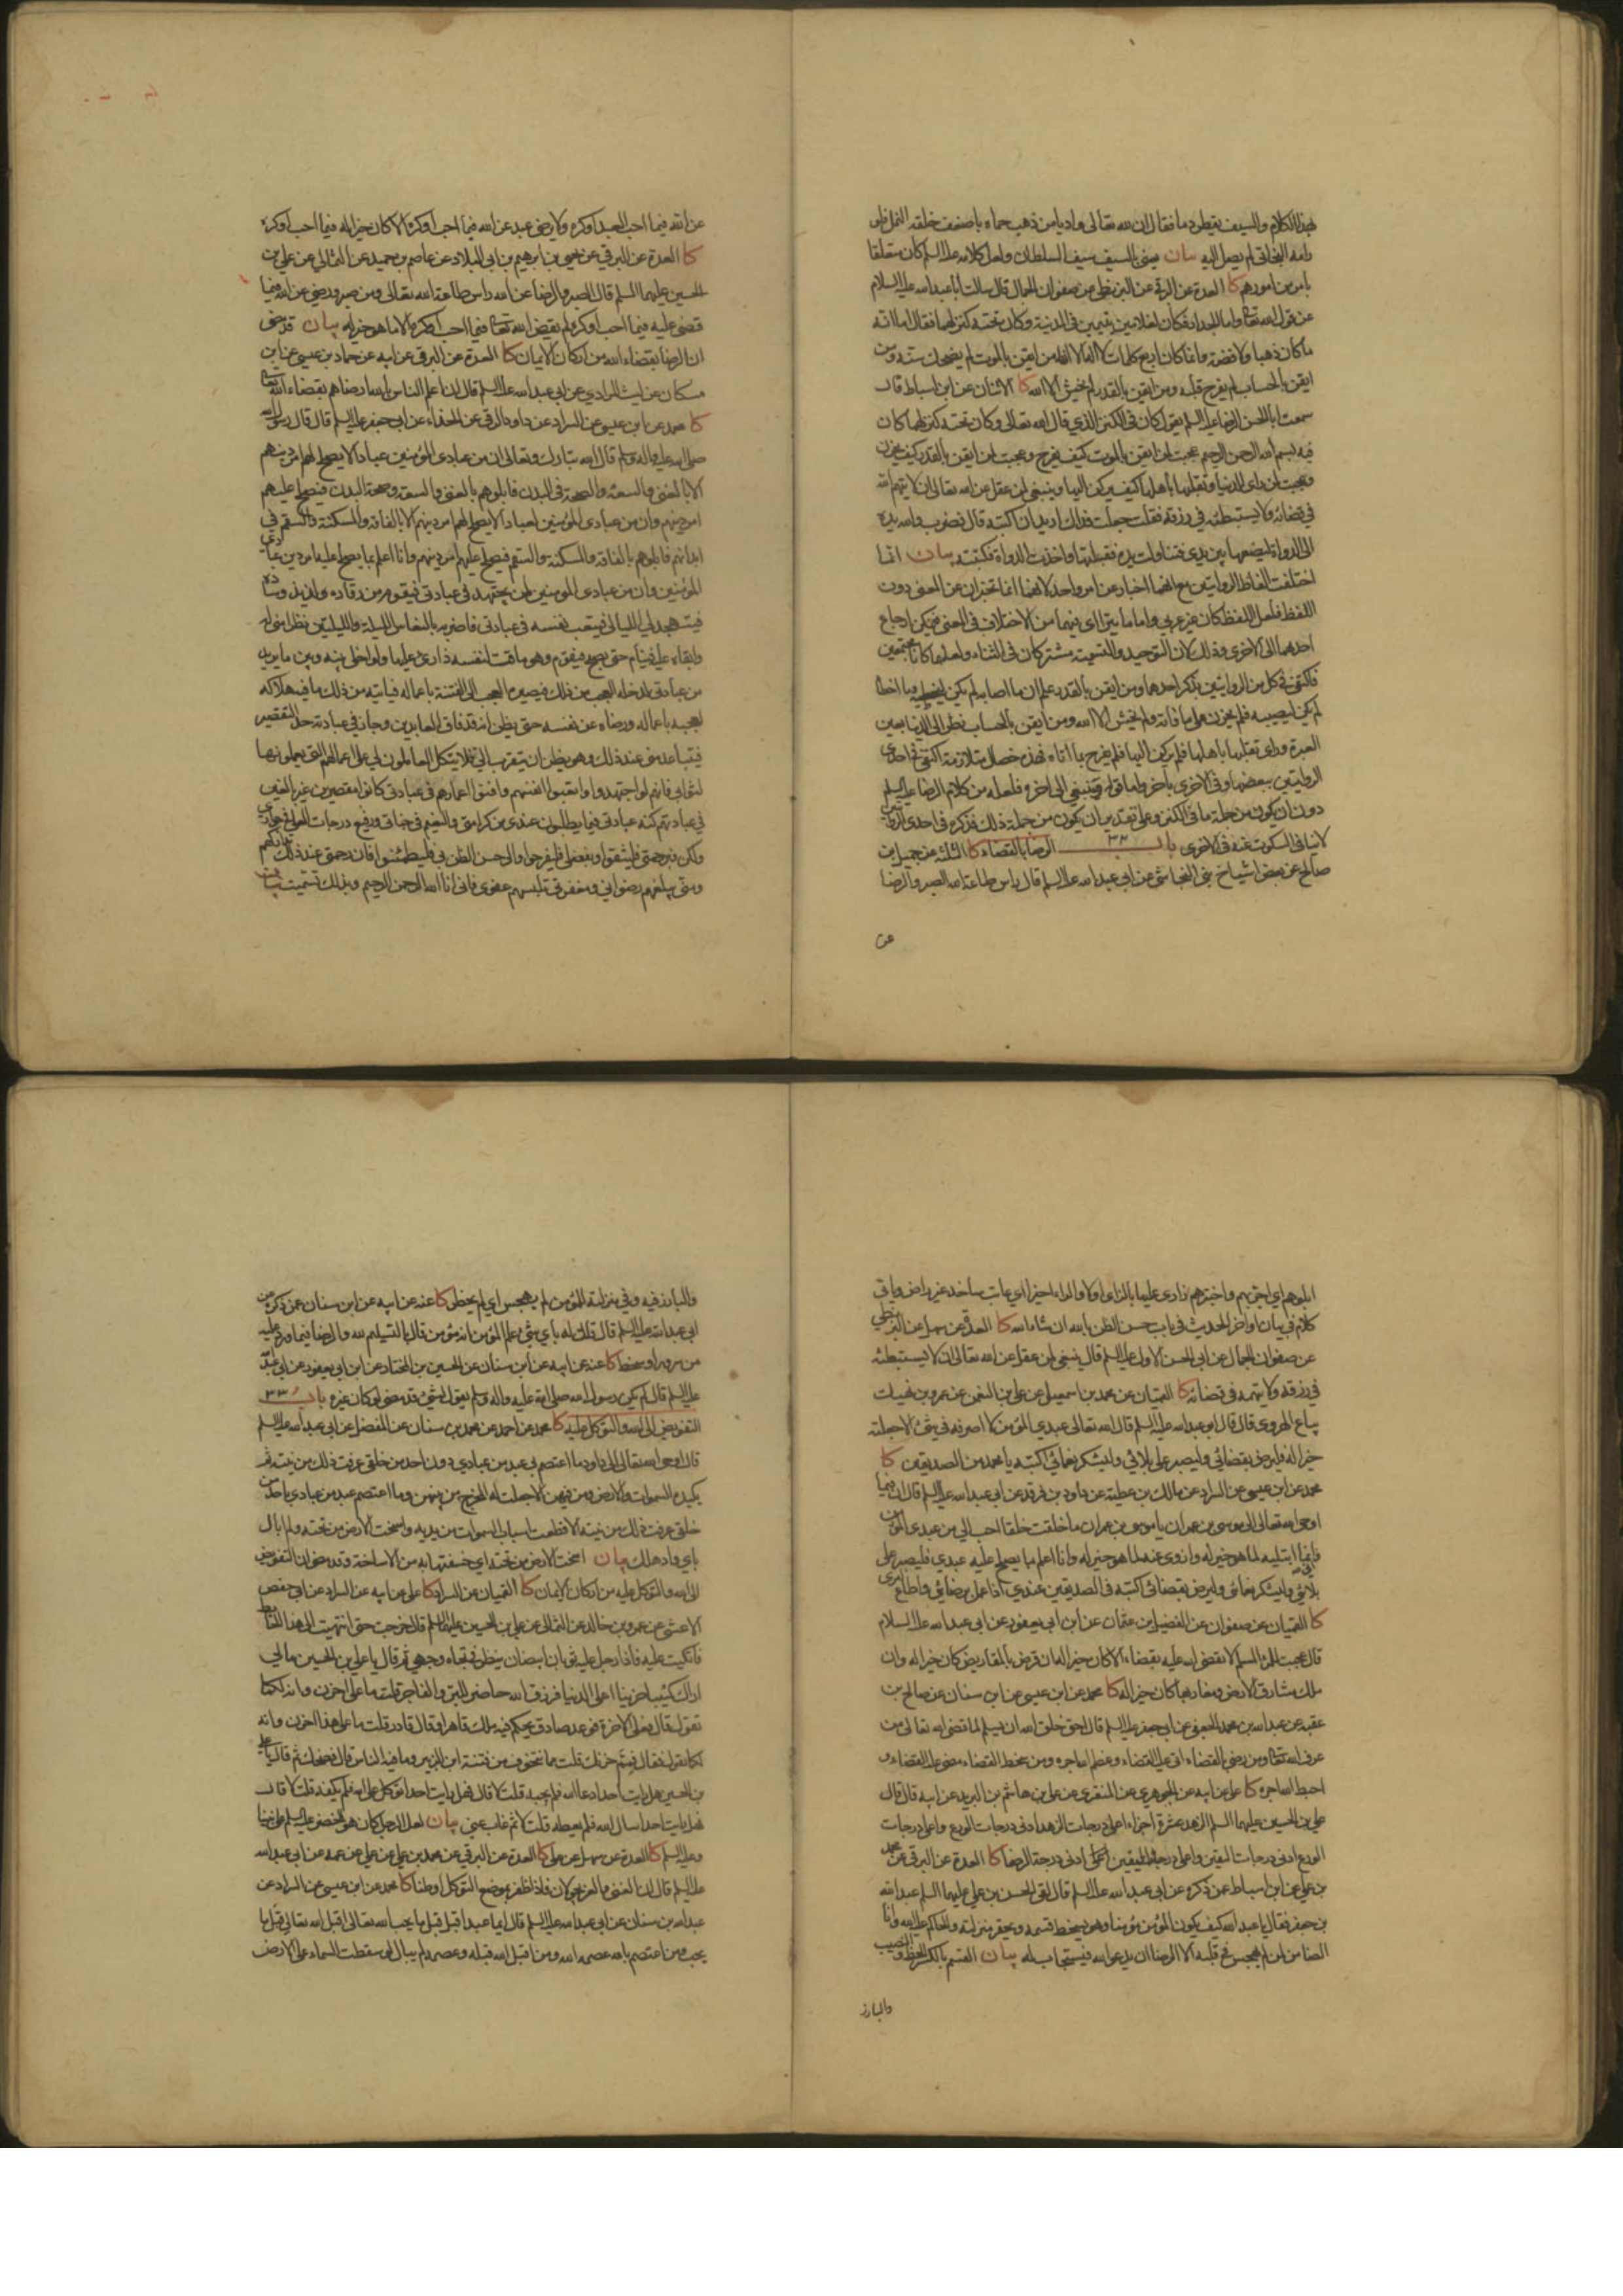 بهذا الكلام والسيف يقطر دما فقال ان لله تعالى واديا من ذهب حماه باضعف خلقه النمل فلو
رامه البخاتي لم يصل اليه بيان يعني بالسيف سيف السلطان ولعل كلامه عليه السلم كان متعلقا
بامر من امورهم كا العدة عن البرقي عن البزنطي عن صفوان الجمال قال سالت أبا عبد الله عليه السلام
عن قول الله تعالى واما الجدار فكان لغلامين يتيمين في المدينة وكان تحته كنز لهما فقال اما انه
ما كان ذهبا ولا فضة وانما كان اربع كلمات لا اله الا انا من ايقن بالموت لم يضحك سنه ومن
ايقن بالحساب لم يفرح قلبه ومن ايقن بالقدر لم يخش الا الله كا الاثنان عن ابن اسباط قال
سمعت ابا الحسن الرضا عليه السلم يقول كان في الكنز الذي قال الله تعالى وكان تحته كنز لهما كان
فيه بسم الله الرحمن الرحيم عجبت لمن ايقن بالموت كيف يفرح وعجبت لمن ايقن بالقدر كيف يحزن
وعجبت لمن راى الدنيا وتقلبها بأهلها كيف يركن اليها وينبغي لمن عقل عن الله تعالى ان لا يتهم الله
في قضائه ولا يستبطئه في رزقه فقلت جعلت فداك اريد ان اكتبه قال فضرب والله يده
الى الدواة ليضعها بين يدي فتناولت يده فقبلتها واخذت الدواة فكتبته بيان انما
اختلفت الفاظ الروايتين مع انهما اخبار عن امر واحد لانهما انما تخبران عن المعنى دون
اللفظ فلعل اللفظ كان غير عربي واما ما يتراى فيهما من الاختلاف في المعنى فيمكن ارجاع
احدهما الى الاخرى وذلك لان التوحيد والتسمية مشتركان في الثناء ولعلهما كانا مجتمعين
فاكتفى في كل من الروايتين بذكر احدهما ومن ايقن بالقدر علم ان ما اصابه لم يكن ليخطيه وما اخطاه
لم يكن ليصيبه فلم يحزن على ما فاته ولم يخش الا الله ومن ايقن بالحساب نظر الى الدنيا بعين
العبرة وراى تقلبها باهلها فلم يركن اليها فلم يفرح بما اتاه فهذه خصال متلازمة اكتفى في احدى
الروايتين ببعضها وفي الاخرى بآخر واما قوله وينبغي الى آخره فلعله من كلام الرضا عليه السلم
دون ان يكون من جملة ما في الكنز وعلى تقدير ان يكون من جملة ذلك فذكره في احدى الروايتين
لا ينافي السكوت عنه في الاخرى باب ٣٢ الرضا بالقضاء كا الثلثة عن جميل بن
صالح عن بعض اشياخ بني النجاشي عن ابي عبد الله عليه السلم قال راس طاعة الله الصبر والرضا
عن
عن الله فيما احب العبد او كره ولا يرضى عبد عن الله فيما احب او كره الا كان خيرا له فيما احب او كره
كا العدة عن البرقي عن يحيى بن ابرهيم بن ابي البلاد عن عاصم بن حميد عن الثمالي عن علي بن
الحسين عليهما السلم قال الصبر والرضا عن الله راس طاعة الله تعالى ومن صبر ورضي عن الله فيما
قضى عليه فيما احب او كره لم يقض الله تعالى فيما احب او كره الا ما هو خير له بيان قد مضى
ان الرضا بقضاء الله من اركان الايمان كا العدة عن البرقي عن ابيه عن حماد بن عيسى عن ابن
مسكان عن ليث المرادي عن ابي عبد الله عليه السلم قال ان اعلم الناس بالله ارضاهم بقضاء الله تعالى
كا محمد عن ابن عيسى عن السراد عن داود الرقي عن الحذاء عن ابي جعفر عليه السلم قال قال رسول الله
صلى الله عليه واله وسلم قال الله تبارك وتعالى ان من عبادي المؤمنين عبادا لا يصلح لهم امر دينهم
الا بالغنى والسعة والصحة في البدن فابلوهم بالغنى والسعة وصحة البدن فيصلح عليهم
امر دينهم وان من عبادي المؤمنين لعبادا لا يصلح لهم امر دينهم الا بالفاقة والمسكنة والسقم في
ابدانهم فابلوهم بالفاقة والمسكنة والسقم فيصلح عليهم امر دينهم وانا اعلم بما يصلح عليه امر دين عبادي
المؤمنين وان من عبادي المؤمنين لمن يجتهد في عبادتي فيقوم من رقاده ولذيذ وساده
فيتهجد لي الليالي فيتعب نفسه في عبادتي فاضربه بالنعاس الليلة والليلتين نظرا مني له
وابقاء عليه فينام حتى يصبح فيقوم وهو ماقت لنفسه زارئ عليها ولو اخلي بينه وبين ما يريد
من عبادتي لدخله العجب من ذلك فيصيره العجب الى الفتنة باعماله فيأتيه من ذلك ما فيه هلاكه
لعجبه باعماله ورضاه عن نفسه حتى يظن انه قد فاق العابدين وجاز في عبادته حد التقصير
فيتباعد مني عند ذلك وهو يظن ان يتقرب الي فلا يتكل العاملون لي على اعمالهم التي يعملونها
لثوابي فانهم لو اجتهدوا واتعبوا انفسهم وافنوا اعمارهم في عبادتي كانوا مقصرين غير بالغين
في عبادتهم كنه عبادتي فيما يطلبون عندي من كرامتي والنعيم في جناتي ورفيع درجات العلى في جواري
ولكن برحمتي فليثقوا وبفضلي فليفرحوا والى حسن الظن بي فليطمئنوا فان رحمتي عند ذلك تداركهم
ومني يبلغهم رضواني ومغفرتي تلبسهم عفوي فاني انا الله الرحمن الرحيم وبذلك تسميت بيان
ابلوهم اي اجربهم واختبرهم زارئ عليها بالزاي اولا والراء اخيرا اي عاتب ساخط غير راض ويأتي
كلام في بيان اواخر الحديث في باب حسن الظن بالله ان شاء الله كا العدة عن سهل عن البزنطي
عن صفوان الجمال عن ابي الحسن الاول عليه السلم قال ينبغي لمن عقل عن الله تعالى ان لا يستبطئه
في رزقه ولا يتهمه في قضائه كا القميان عن محمد بن اسمعيل عن علي بن النعمن عن عمرو بن نهيك
بياع الهروي قال قال ابو عبد الله عليه السلم قال الله تعالى عبدي المؤمن لا اصرفه في شيء الا جعلته
خيرا له فليرض بقضائي وليصبر على بلائي وليشكر نعمائي اكتبه يا محمد من الصديقين كا
محمد عن ابن عيسى عن السراد عن مالك بن عطية عن داود بن فرقد عن ابي عبد الله عليه السلم قال ان فيما
اوحى الله تعالى الى موسى بن عمران يا موسى بن عمران ما خلقت خلقا احب الي من عبدي المؤمن
فاني انما ابتليه لما هو خير له وازوي عنه لما هو خير له وانا اعلم بما يصلح عليه عبدي فليصبر على
بلائي وليشكر نعمائي وليرض بقضائي اكتبه في الصديقين عندي اذا عمل برضائي واطاع امري
كا القميان عن صفوان عن الفضيل بن عثمان عن ابن ابي يعفور عن ابي عبد الله عليه السلام
قال عجبت للمرء المسلم لا يقضي الله عليه بقضاء الا كان خيرا له ان قرض بالمقاريض كان خيرا له وان
ملك مشارق الارض ومغاربها كان خيرا له كا محمد عن ابن عيسى عن ابن سنان عن صالح بن
عقبه عن عبد الله بن محمد الجعفي عن ابي جعفر عليه السلم قال احق خلق الله ان يسلم لما قضى الله تعالى من
عرف الله تعالى ومن رضي بالقضاء اتى عليه القضاء وعظم الله اجره ومن سخط القضاء مضى عليه القضاء و
احبط الله اجره كا علي عن ابيه عن الجوهري عن المنقري عن علي بن هاشم بن البريد عن ابيه قال قال
علي بن الحسين عليهما السلم الزهد عشرة اجزاء اعلى درجات الزهد ادنى درجات الورع واعلى درجات
الورع ادنى درجات اليقين واعلى درجات اليقين ادنى درجة الرضا كا العدة عن البرقي عن محمد
بن علي عن ابن اسباط عمن ذكره عن ابي عبد الله عليه السلم قال لقي الحسن بن علي عليهما السلم عبد الله
بن جعفر فقال يا عبد الله كيف يكون المؤمن مؤمنا وهو يسخط قسمه ويحقر منزلته والحاكم عليه الله وانا
الضامن لمن لم يهجس في قلبه الا الرضا ان يدعو الله فيستجاب له بيان القسم بالكسر الحظ والنصيب
والبارز
والبارز فيه وفي منزلته للمؤمن لم يهجس اي لم يخطر كا عنه عن ابيه عن ابن سنان عمن ذكره عن
ابي عبد الله عليه السلم قال قلت له باي شيء يعلم المؤمن انه مؤمن قال بالتسليم لله والرضا فيما ورد عليه
من سرور او سخط كا عنه عن ابيه عن ابن سنان عن الحسين بن المختار عن ابن ابي يعفور عن ابي عبد الله
عليه السلم قال لم يكن رسول الله صلى الله عليه واله وسلم يقول لشيء قد مضى لو كان غيره باب ٣٣
التفويض الى الله والتوكل عليه كا محمد عن احمد عن محمد بن سنان عن المفضل عن ابي عبد الله عليه السلم
قال اوحى الله تعالى الى داود ما اعتصم بي عبد من عبادي دون احد من خلقي عرفت ذلك من نيته ثم
يكيده السموات والارض ومن فيهن الا جعلت له المخرج من بينهن وما اعتصم عبد من عبادي باحد من
خلقي عرفت ذلك من نيته الا قطعت اسباب السموات من يديه واسخت الارض من تحته ولم ابال
باي واد هلك بيان اسخت الارض من تحته اي خسفتها به من الاساخة وقد مضى ان التفويض
الى الله والتوكل عليه من اركان الايمان كا القميان عن السراد كا علي عن ابيه عن السراد عن ابي حفص
الاعشى عن عمرو بن خالد عن الثمالي عن علي بن الحسين عليهما السلم قال خرجت حتى انتهيت الى هذا الحائط
فاتكيت عليه فاذا رجل عليه ثوبان ابيضان ينظر في تجاه وجهي ثم قال يا علي بن الحسين ما لي
اراك كئيبا حزينا اعلى الدنيا فرزق الله حاضر للبر والفاجر قلت ما على هذا احزن وانه لكما
تقول قال فعلى الاخرة فوعد صادق يحكم فيه ملك قاهر او قال قادر قلت ما على هذا احزن وانه
لكما تقول فقال فمم حزنك قلت مما نتخوف من فتنة ابن الزبير وما فيه الناس قال فضحك ثم قال يا علي
بن الحسين هل رايت احدا دعا الله فلم يجبه قلت لا قال فهل رايت احدا توكل على الله فلم يكفه قلت لا قال
فهل رايت احدا سال الله فلم يعطه قلت لا ثم غاب عني بيان لعل الرجل كان هو الخضر عليه السلم على نبينا
وعليه السلم كا العدة عن سهل عن علي كا العدة عن البرقي عن محمد بن علي عن علي عن عمه عن ابي عبد الله
عليه السلم قال ان الغنى والعز يجولان فاذا ظفرا بموضع التوكل اوطنا كا محمد عن ابن عيسى عن السراد عن
عبد الله بن سنان عن ابي عبد الله عليه السلم قال ايما عبد اقبل قبل ما يحب الله تعالى اقبل الله تعالى قبل ما
يحب ومن اعتصم بالله عصمه الله ومن اقبل الله قبله وعصمه لم يبال لو سقطت السماء على الارض